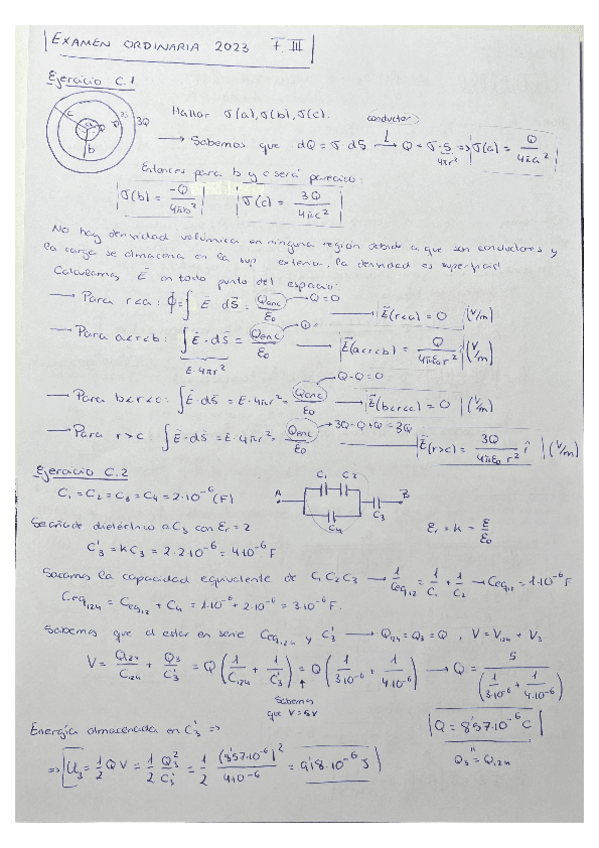 EXAMEN ORDINARIA 2023 F.III
Ejercicio C.1
c a b 3Q
Hallar σ(a), σ(b), σ(c).
conductor
→ Sabemos que dQ = σ dS → Q = σ·S ⇒ σ(a) = Q/4πa²
4πr²
Entonces para b y c será parecido:
σ(b) = -Q/4πb² σ(c) = 3Q/4πc²
No hay densidad volúmica en ninguna región debido a que son conductores y
la carga se almacena en la sup exterior, la densidad es superficial
Calculamos E⃗ en todo punto del espacio:
→ Para r<a: ϕ = ∫ E⃗ dS⃗ = Qenc/ε0 → Q = 0 → E⃗(r<a) = 0 (V/m)
→ Para a<r<b: ∫ E⃗·dS⃗ = Qenc/ε0 → E⃗(a<r<b) = Q/4πε0r² (V/m)
E·4πr²
Q-Q=0
→ Para b<r<c: ∫E⃗·dS⃗ = E·4πr² = Qenc/ε0 → E⃗(b<r<c) = 0 (V/m)
3Q-Q+Q = 3Q
→ Para r>c: ∫E⃗·dS⃗ = E·4πr² = Qenc/ε0 E⃗(r>c) = 3Q/4πε0r² r̂ (V/m)
Ejercicio C.2
C₁ = C₂ = C₃ = C₄ = 2·10⁻⁶ (F)
A C₁ C₂ C₄ C₃ B
Se añade dieléctrico a C₃ con εr = 2
εr = k = ε/ε0
C'₃ = kC₃ = 2·2·10⁻⁶ = 4·10⁻⁶ F
Sacamos la capacidad equivalente de C₁C₂C₃ → 1/Ceq₁₂ = 1/C₁ + 1/C₂ → Ceq₁₂ = 1·10⁻⁶ F
Ceq₁₂₄ = Ceq₁₂ + C₄ = 1·10⁻⁶ + 2·10⁻⁶ = 3·10⁻⁶ F.
Sabemos que al estar en serie Ceq₁₂₄ y C'₃ → Q₁₂₄ = Q₃ = Q, V = V₁₂₄ + V₃
V = Q₁₂₄/C₁₂₄ + Q₃/C'₃ = Q(1/C₁₂₄ + 1/C'₃) = Q(1/3·10⁻⁶ + 1/4·10⁻⁶) → Q = 5/(1/3·10⁻⁶ + 1/4·10⁻⁶)
Sabemos
que V=5V
Energía almacenada en C'₃ ⇒
Q = 8'57·10⁻⁶ C
Q₃ = Q₁₂₄
⇒ U₃ = 1/2 Q V = 1/2 Q₃²/C'₃ = 1/2 (8'57·10⁻⁶)²/4·10⁻⁶ = 9'18·10⁻⁶ J